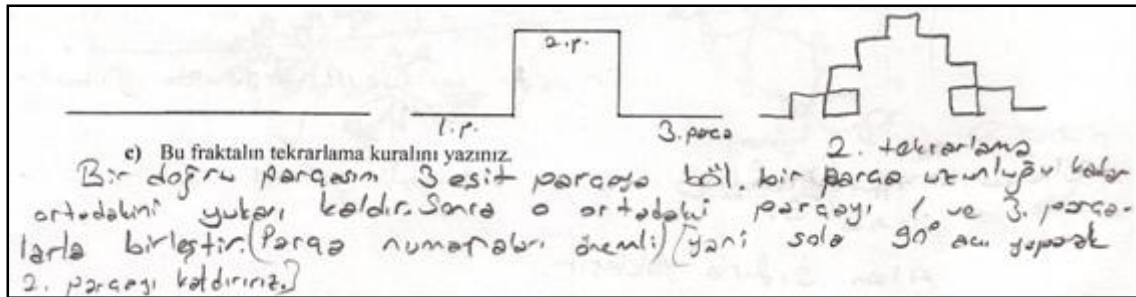 2.p.
1.p.
3.parça
2. tekrarlama
c) Bu fraktalın tekrarlama kuralını yazınız.
Bir doğru parçasın 3 eşit parçaya böl. bir parça uzunluğu kadar
ortadakini yukarı kaldır. Sonra o ortadaki parçayı 1. ve 3. parça-
larla birleştir. (Parça numaraları önemli) (yani sola 90° açı yaparak
2. parçayı kaldırırız.)